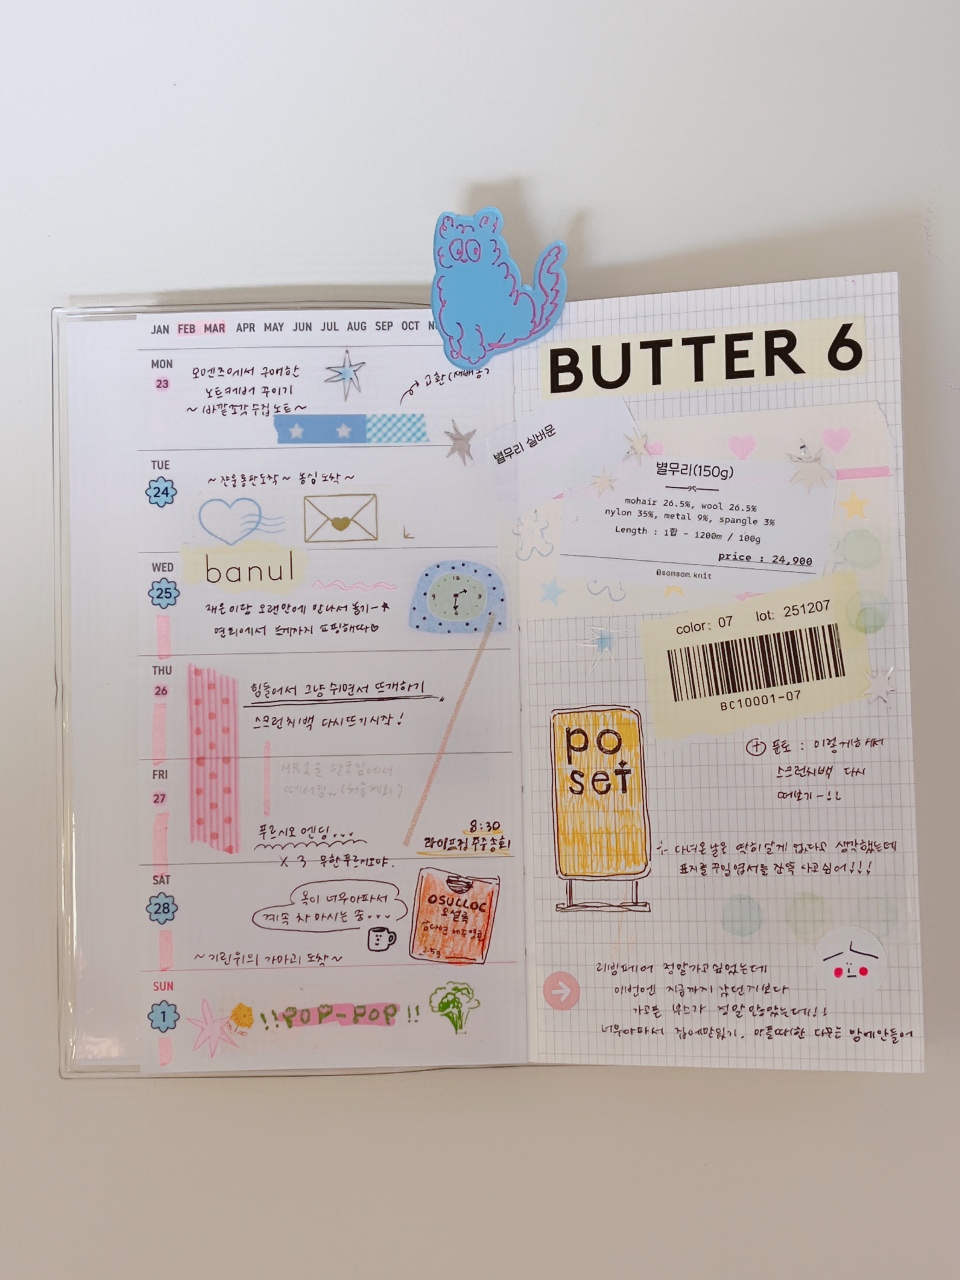 JAN FEB MAR APR MAY JUN JUL AUG SEP OCT
MON
23
오멘즈에서 구매한
노트커버 꾸미기
~바깥조각수집노트~
교환
TUE
24
도착~ 도착~
WED
25
banul
오랜만에 만나서 놀기-
쇼핑했다♡
THU
26
힘들어서 그냥 쉬면서 뜨개하기
스크런치백 다시뜨기시작!
FRI
27
푸르시오 엔딩...
x 3 무한푸르시오야.
8:30
라이프집 주주총회
SAT
28
목이 너무아파서
계속 차 마시는 중...
OSULLOC
오설록
삼다연 제주영귤
~기린위의 까마귀 도착~
SUN
1
!!POP-POP!!
BUTTER 6
별무리 실버문
별무리(150g)
mohair 26.5%, wool 26.5%
nylon 35%, metal 9%, spangle 3%
Length : 1합 - 1200m / 100g
price : 24,900
@somsom.knit
color: 07 lot: 251207
BC10001-07
po
set
+ 폰토 : 이렇게해서
스크런치백 다시
떠보기-!!
다녀온날은 딱히살게 없다고 생각했는데
표지를 꾸민 엽서를 잔뜩 사고싶어!!!
리빙페어 정말가고싶었는데
이번엔 지금까지 갔던거보다
가고픈 부스가 정말 많았는데!!
너무아파서 집에만있기.